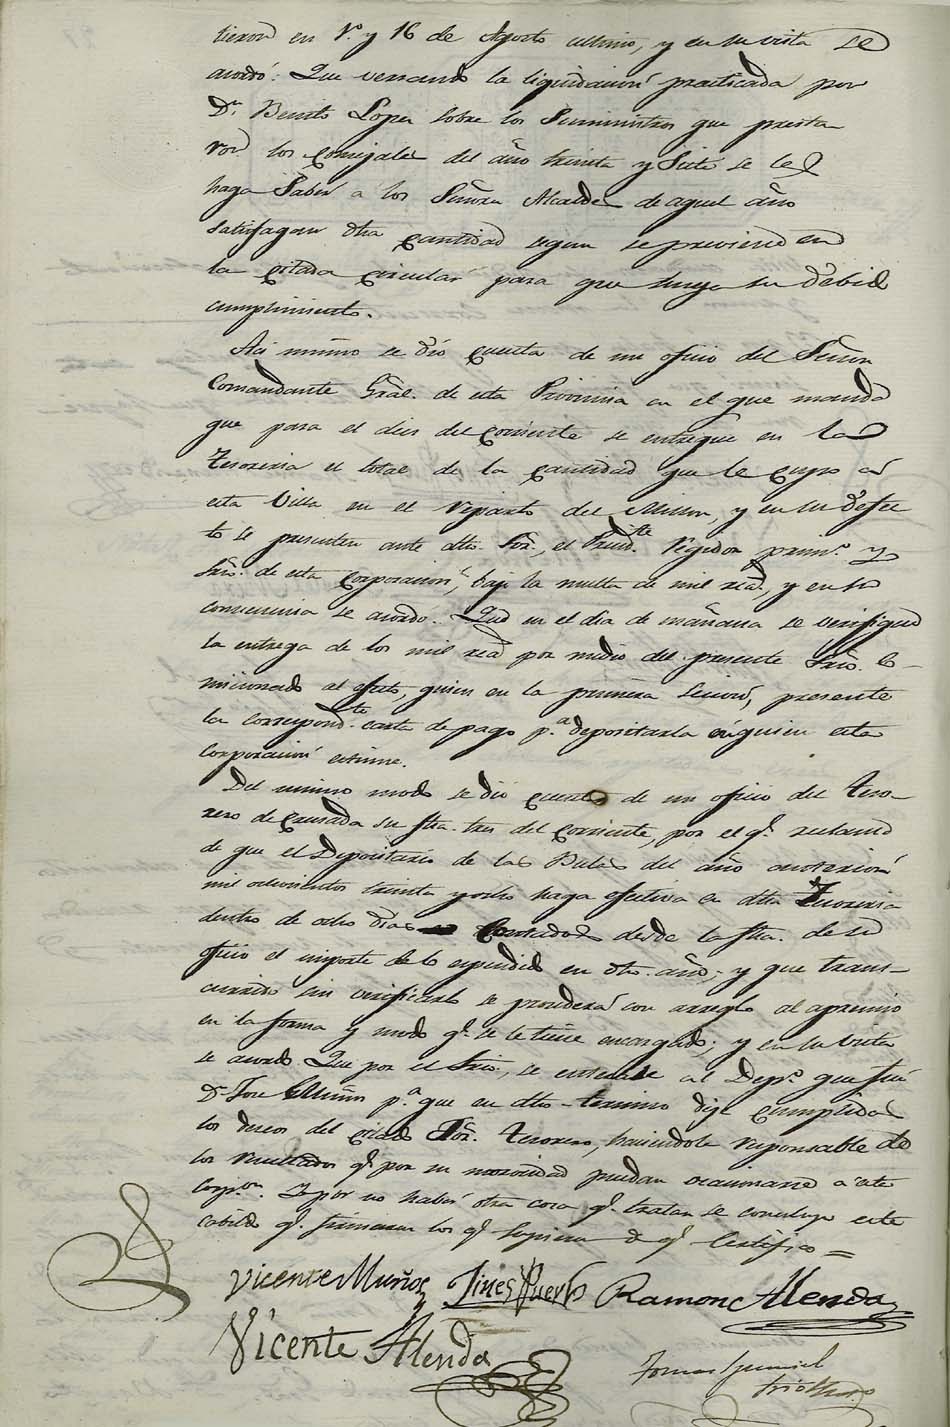 tieron en 1.º y 16 de Agosto ultimo, y en su vista se
acordó: Que versando la liquidacion practicada por
D.n Benito Lopez sobre los Suministros que presta-
ron los Consejales del año treinta y Siete se les
haga Saber a los Señores Alcaldes de aquel año
satisfagan dha cantidad segun se previene en
la citada circular para que tenga su debido
cumplimiento.
Asi mismo se dió cuenta de un oficio del Señor
Comandante Gral. de esta Provincia en el que manda
que para el dies del corriente se entregue en la
Tesoreria el total de la cantidad que le cupo a
esta Villa en el reparto del Millon, y en su defec
to se presenten ante dho. Sor., el Presid.te Regidor prim.º y
Srio. de esta Corporacion, bajo la multa de mil rea.s, y en su
consecuencia se acordó: Que en el dia de mañana se verifique
la entrega de los mil rea.s por medio del presente Srio. Co-
misionado al efecto, quien en la primera Secion, presente
la correspond.te carta de pago p.a depositarla en quien esta
Corporacion estime.
Del mismo modo se dió cuenta de un oficio del Teso-
rero de Cruzada su fha. tres del corriente, por el q.e reclama
de que el Depositario de las Bulas del año anterior
mil ochocientos treinta y ocho haga efectiva en dha Tesoreria
dentro de ocho dias contados desde la fha. de su
oficio el importe de lo espendido en dho. año; y que trans-
currido sin verificarlo se procederá con arreglo al apremio
en la forma y modo q.e se le tiene encargado; y en su vista
se acordó Que por el Srio., se entere al Dep.º que fué
D.n Jose Muños p.a que en dho termino deje cumplidos
los deseos del citado Sor. Tesorero, haciendole responsable de
los resultados q.e por su morosidad puedan ocacionarse a este
Corp.on. Y por no haber otra cosa q.e tratar se concluye este
cabildo q.e firmaron los q.e supieron de q.e Certifico =
Vicente Muñoz Gines Puerto Ramon Alenda
Vicente Alenda
Tomas
Srio